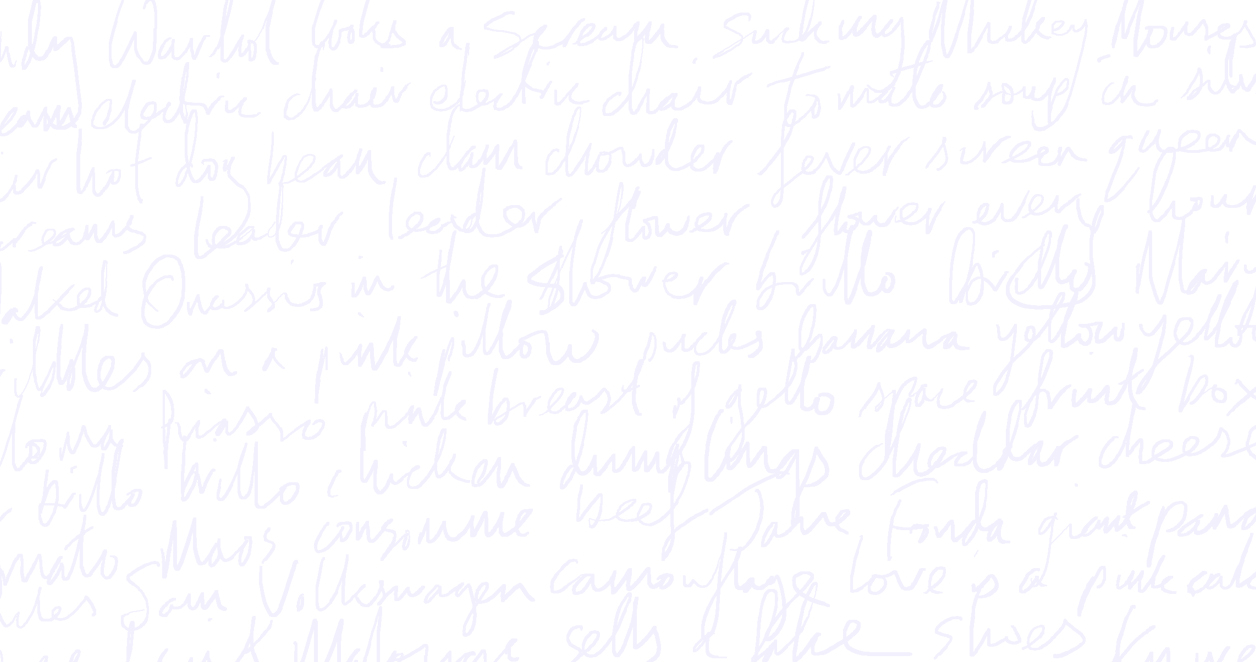 Warhol looks a Scream Sucking Mickey Mouses
electric chair electric chair tomato soup in
hot dog bean clam chowder fever screen queen
reams leader leader flower flower even hour
aked Onassis in the $hower brillo brillo Mari
ibbles on a pink pillow sucks banana yellow yello
Picasso pink breast of jello space fruit box
brillo brillo chicken dumplings cheddar cheese
mato Maos consomme beef Jane Fonda giant pand
Sam Volkswagen camouflage love is a pink cak
sells a fake shoes